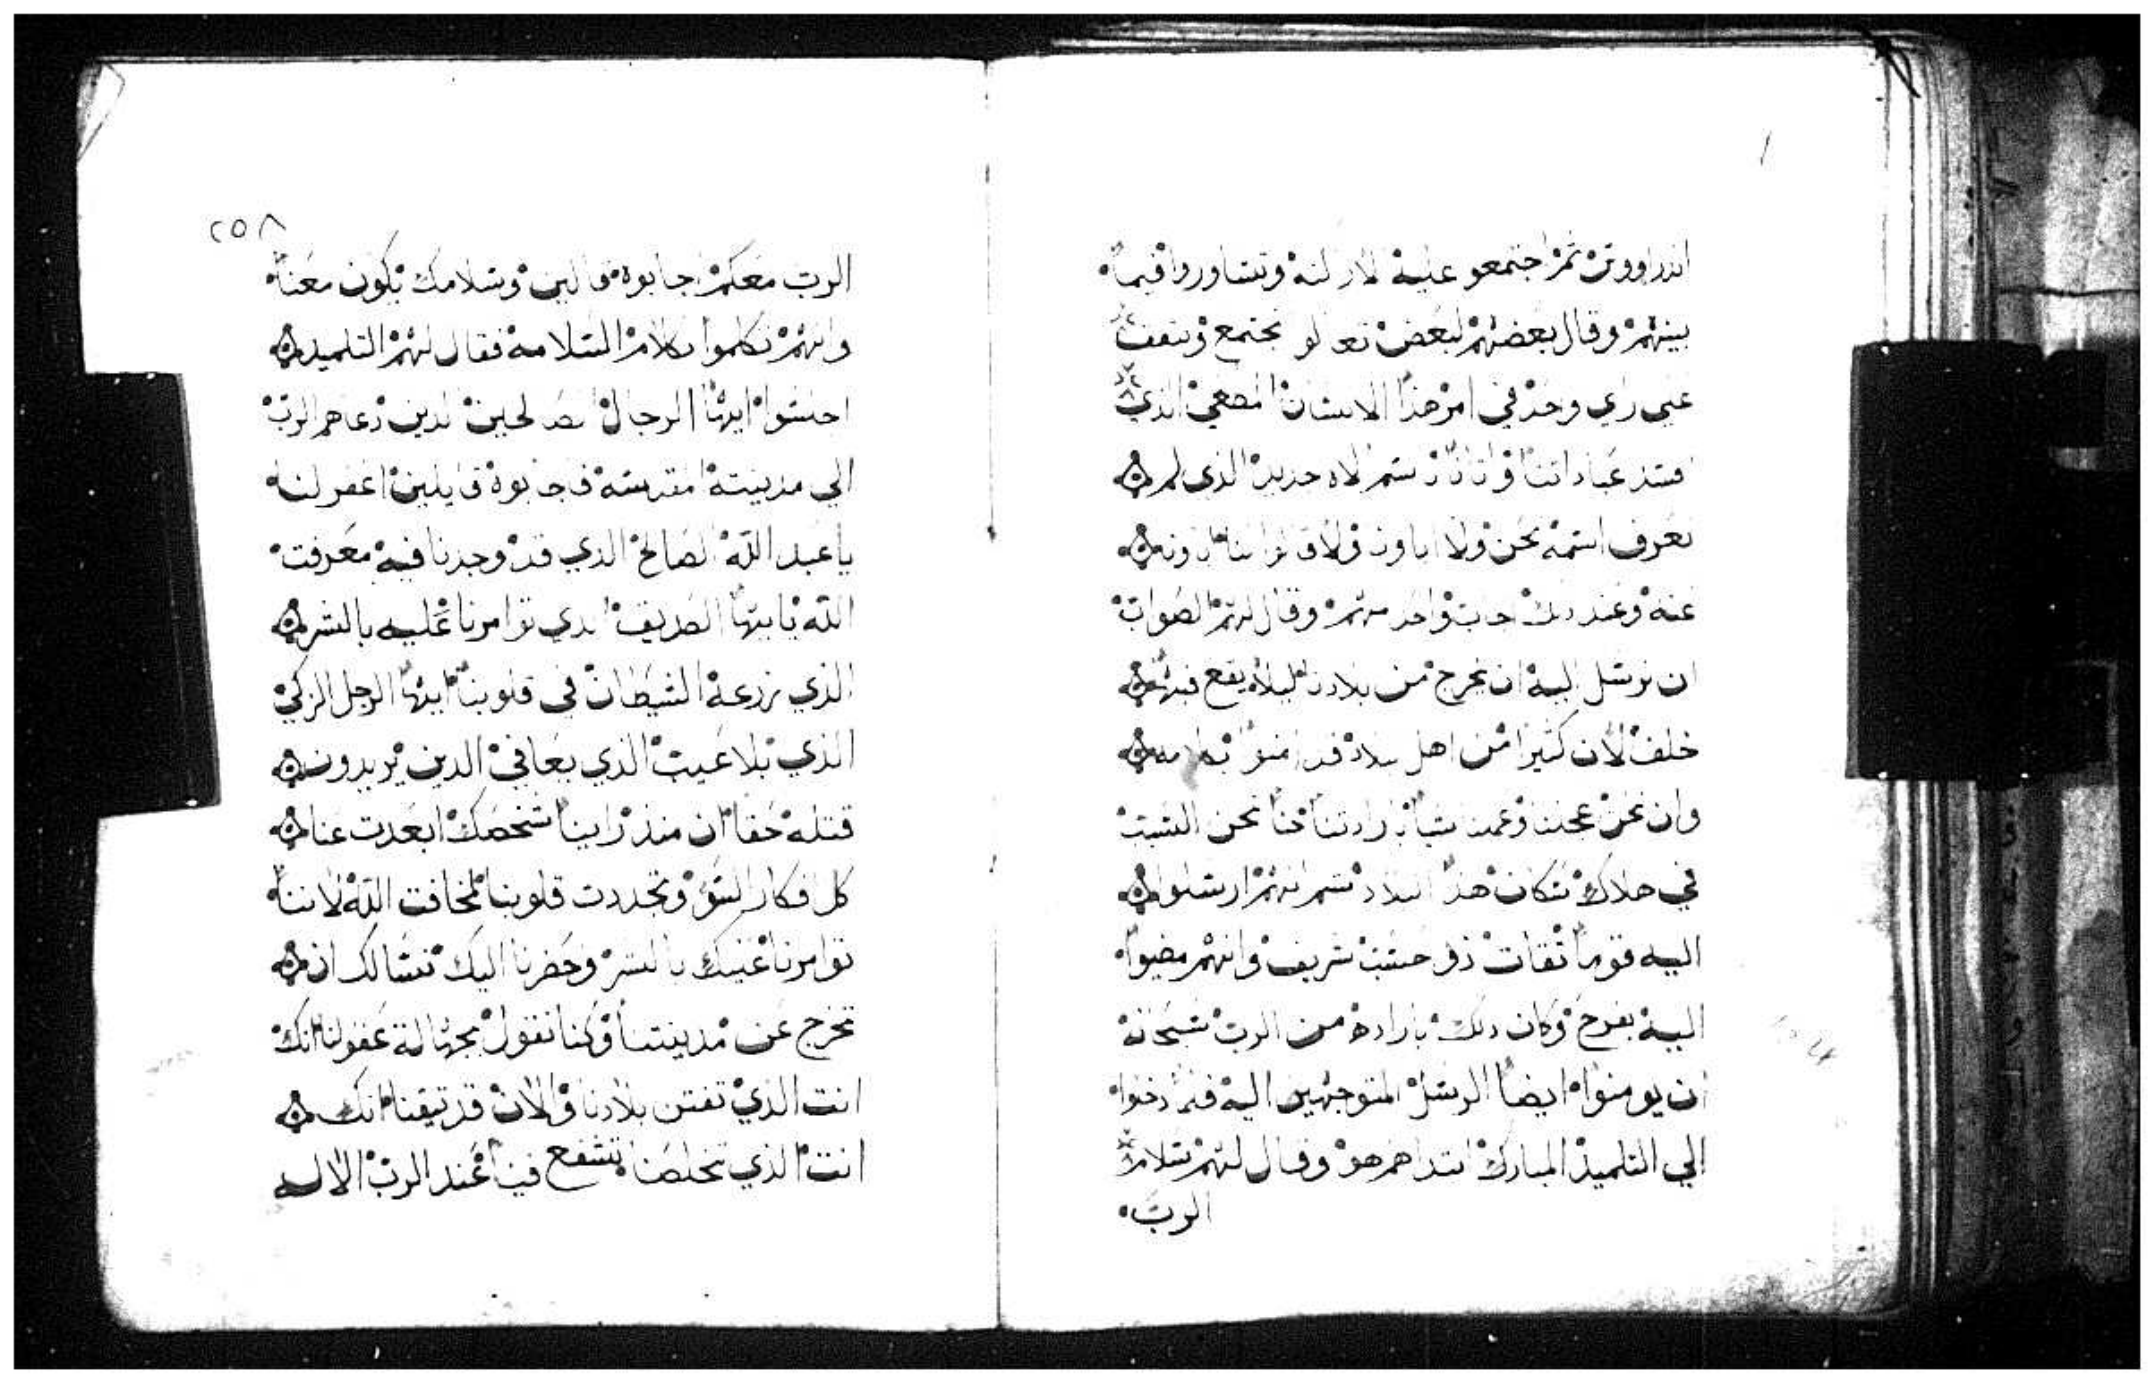 اندراووس ثم اجتمعو عليه الاراكنه وتشاوروا فيما
بينهم وقال بعضهم لبعض تعالو نجتمع ونتفق
علي راي واحد في امر هذا الانسان المطغي الذي
افسد عباداتنا واتانا باسم الاه جديد الذي لم
نعرف اسمه نحن ولا اباونا ولا
عنه وعند ذلك اجاب واحد منهم وقال لهم الصواب
ان نرسل اليه ان يخرج من بلادنا ليلا يقع فيها
خلف لان كثيرا من اهل بلادنا قد امنوا بكلامه
وان نحن عجلنا وعملنا شيا بارادتنا كنا نحن السبب
في هلاك سكان هذه البلاد ثم انهم ارسلوا
اليه قوما ثقات ذو حسب شريف وانهم مضيوا
اليه بفرح وكان ذلك بارادة من الرب سبحانه
ان يومنوا ايضا الرسل المتوجهين اليه فلما دخلوا
الي التلميذ المبارك ابتداهم هو وقال لهم سلام
الرب
٢٥٨
الرب معكم اجابوه قالين وسلامك يكون معنا
وانهم تكلموا بكلام السلامه فقال لهم التلميذ
اجلسوا ايها الرجال الصالحين الذين دعاهم الرب
الي مدينته المقدسه فاجابوه قايلين اغفر لنا
يا عبد الله الصالح الذي قد وجدنا فيه معرفت
الله يا ايها الصديق الذي توامرنا عليه بالشر
الذي زرعه الشيطان في قلوبنا ايها الرجل الزكي
الذي بلا عيب الذي يعافي الدين يريدون
قتله حقا ان منذ راينا شخصك ابعدت عنا
كل افكار السؤ وتجددت قلوبنا لمخافت الله لاننا
توامرنا عليك بالشر وحضرنا اليك نسالك ان
تخرج عن مدينتنا وكنا نقول بجهالة عقولنا انك
انت الذي تفتن بلادنا والان قد تيقنا انك
انت الذي تخلصنا وتشفع فينا عند الرب الاله